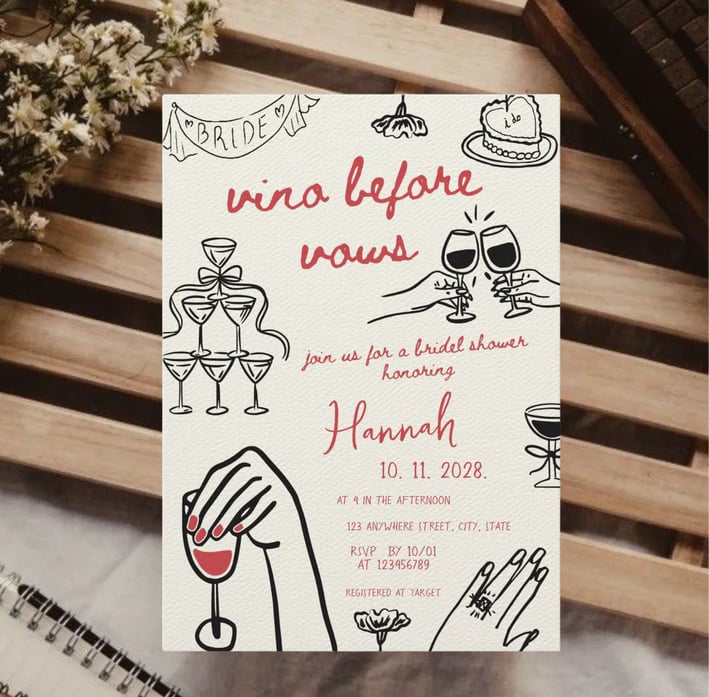 BRIDE
i do
vino before
vows
join us for a bridel shower
honoring
Hannah
10. 11. 2028.
AT 4 IN THE AFTERNOON
123 ANYWHERE STREET, CITY, STATE
RSVP BY 10/01
AT 123456789
REGISTERED AT TARGET